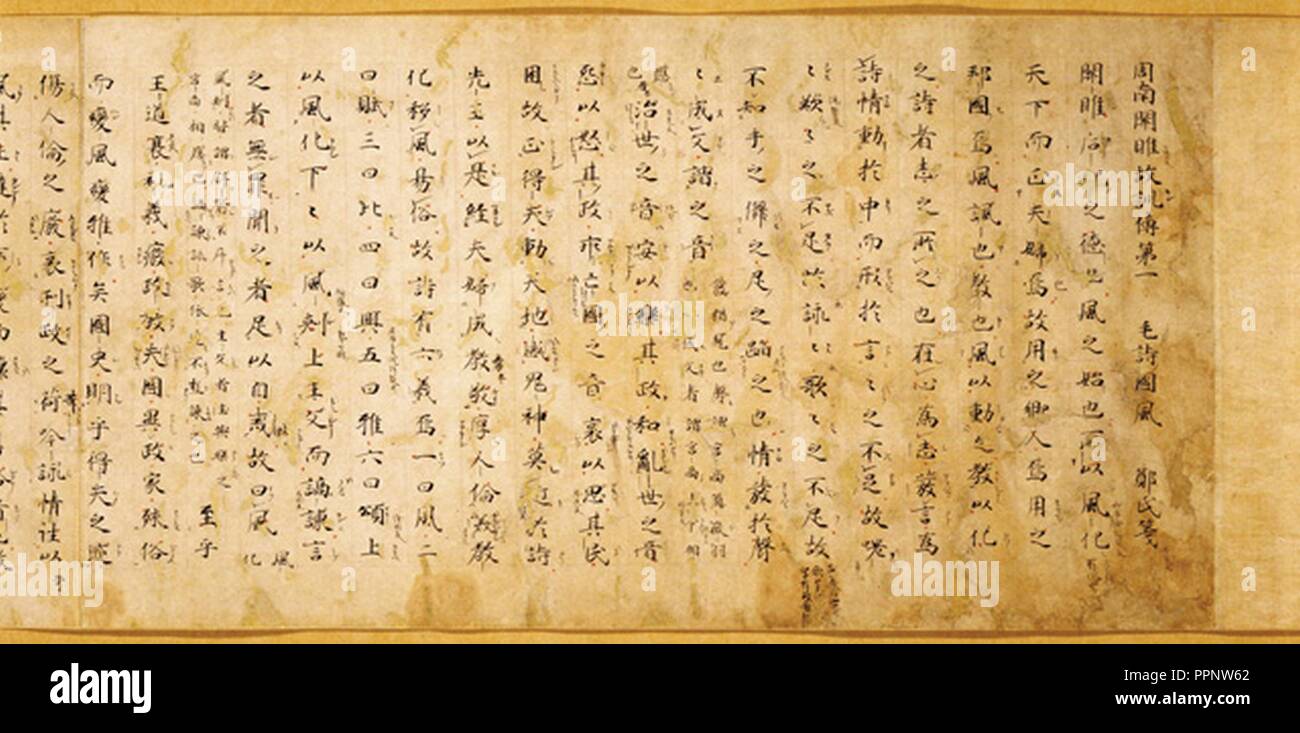 周南關雎故訓傳第一 毛詩國風 鄭氏箋
關雎后妃之德也風之始也所以風化
天下而正夫婦焉故用之鄉人焉用之
邦國焉風諷也教也風以動之教以化
之詩者志之所之也在心為志發言為
詩情動於中而形於言〻之不足故嗟
〻歎〻之不足故詠〻歌〻之不足故
不知手之儛之足之蹈之也情發於聲
〻成文謂之音 發猶見也聲謂宮商角徵羽也成文者謂宮商上下相
應也 治世之音安以樂其政和亂世之音
怨以怒其政乖亡國之音哀以思其民
困故正得失動天地感鬼神莫近於詩
先王以是經夫婦成孝敬厚人倫美教
化移風易俗故詩有六義焉一曰風二
曰賦三曰比四曰興五曰雅六曰頌上
以風化下〻以風刺上主文而譎諫言
之者無罪聞之者足以自戒故曰風 風化
風刺皆謂譬喻不斥言也主文者主與樂之宮商相應也譎諫詠歌依違不直諫也 至乎
王道衰礼義廢政教失國異政家殊俗
而變風變雅作矣國史明乎得失之迹
傷人倫之廢哀刑政之苛吟詠情性以
alamy
Image ID: PPNW62
www.alamy.com